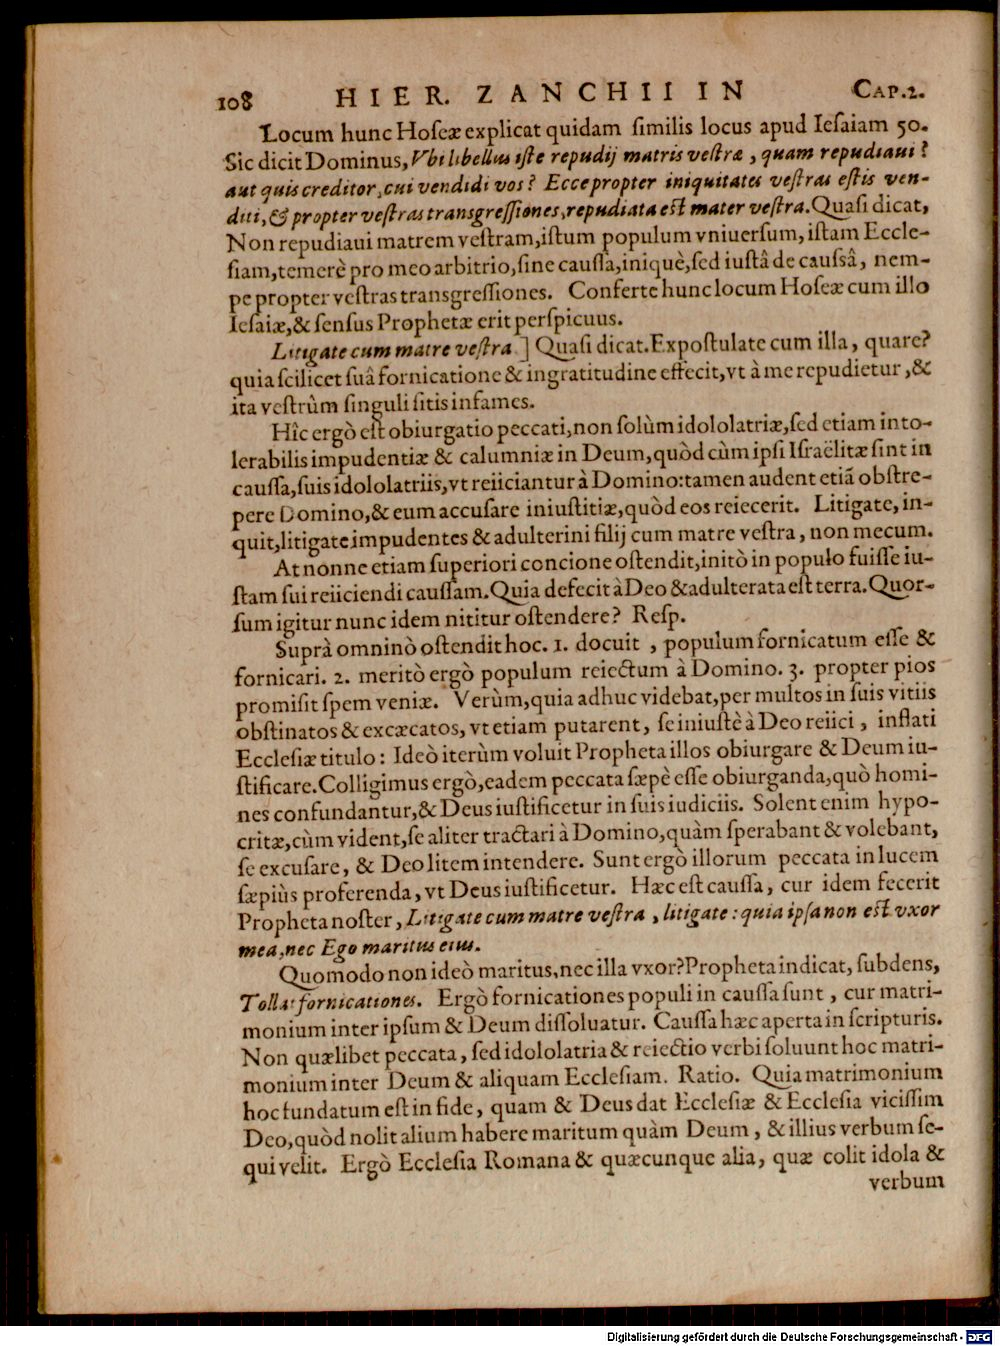 108 HIER. ZANCHII IN CAP.2.
Locum hunc Hoſeæ explicat quidam ſimilis locus apud Ieſaiam 50.
Sic dicit Dominus, Vbi libellus iſte repudij matris veſtræ, quam repudiaui?
aut quis creditor, cui vendidi vos? Ecce propter iniquitates veſtras eſtis ven-
diti, & propter veſtras transgreſſiones, repudiata eſt mater veſtra. Quaſi dicat,
Non repudiaui matrem veſtram, iſtum populum vniuerſum, iſtam Eccle-
ſiam, temerè pro meo arbitrio, ſine cauſſa, iniquè, ſed iuſtâ de cauſsâ, nem-
pe propter veſtras transgreſſiones. Conferte hunc locum Hoſeæ cum illo
Ieſaiæ, & ſenſus Prophetæ erit perſpicuus.
Litigate cum matre veſtra.] Quaſi dicat. Expoſtulate cum illa, quare?
quia ſcilicet ſuâ fornicatione & ingratitudine effecit, vt à me repudietur, &
ita veſtrùm ſinguli ſitis infames.
Hîc ergò eſt obiurgatio peccati, non ſolùm idololatriæ, ſed etiam into-
lerabilis impudentiæ & calumniæ in Deum, quòd cùm ipſi Iſraëlitæ ſint in
cauſſa, ſuis idololatriis, vt reiiciantur à Domino: tamen audent etiã obſtre-
pere Domino, & eum accuſare iniuſtitiæ, quòd eos reiecerit. Litigate, in-
quit, litigate impudentes & adulterini filij cum matre veſtra, non mecum.
At nonne etiam ſuperiori concione oſtendit, initò in populo fuiſſe iu-
ſtam ſui reiiciendi cauſſam. Quia defecit à Deo & adulterata eſt terra. Quor-
ſum igitur nunc idem nititur oſtendere? Reſp.
Suprà omninò oſtendit hoc. 1. docuit, populum fornicatum eſſe &
fornicari. 2. meritò ergò populum reiectum à Domino. 3. propter pios
promiſit ſpem veniæ. Verùm, quia adhuc videbat, per multos in ſuis vitiis
obſtinatos & excæcatos, vt etiam putarent, ſe iniuſtè à Deo reiici, inflati
Eccleſiæ titulo: Ideò iterùm voluit Propheta illos obiurgare & Deum iu-
ſtificare. Colligimus ergò, eadem peccata ſæpè eſſe obiurganda, quò homi-
nes confundantur, & Deus iuſtificetur in ſuis iudiciis. Solent enim hypo-
critæ, cùm vident, ſe aliter tractari à Domino, quàm ſperabant & volebant,
ſe excuſare, & Deo litem intendere. Sunt ergò illorum peccata in lucem
ſæpiùs proferenda, vt Deus iuſtificetur. Hæc eſt cauſſa, cur idem fecerit
Propheta noſter, Litigate cum matre veſtra, litigate: quia ipſa non eſt vxor
mea, nec Ego maritus eius.
Quomodo non ideò maritus, nec illa vxor? Propheta indicat, ſubdens,
Tollat fornicationes. Ergò fornicationes populi in cauſſa ſunt, cur matri-
monium inter ipſum & Deum diſſoluatur. Cauſſa hæc aperta in ſcripturis.
Non quælibet peccata, ſed idololatria & reiectio verbi ſoluunt hoc matri-
monium inter Deum & aliquam Eccleſiam. Ratio. Quia matrimonium
hoc fundatum eſt in fide, quam & Deus dat Eccleſiæ & Eccleſia viciſſim
Deo, quòd nolit alium habere maritum quàm Deum, & illius verbum ſe-
qui velit. Ergò Eccleſia Romana & quæcunque alia, quæ colit idola &
verbum
Digitalisierung gefördert durch die Deutsche Forschungsgemeinschaft - DFG